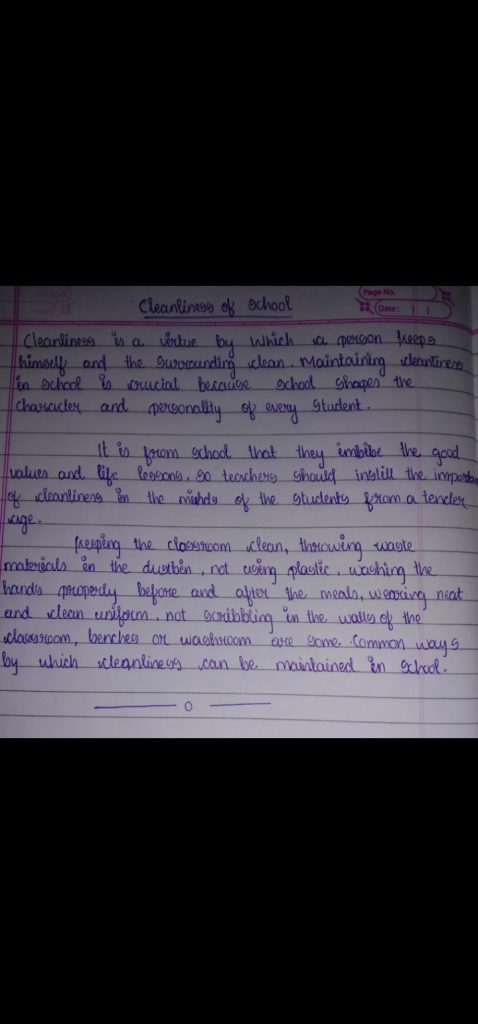 Page No.
Date:
Cleanliness of school
Cleanliness is a virtue by which a person keeps
himself and the surrounding clean. Maintaining cleanliness
in school is crucial because school shapes the
character and personality of every student.
It is from school that they imbibe the good
values and life lessons. So teachers should instill the importan
of cleanliness in the minds of the students from a tender
age.
Keeping the classroom clean, throwing waste
materials in the dustbin, not using plastic, washing the
hands properly before and after the meals, wearing neat
and clean uniform, not scribbling in the walls of the
classroom, benches or washroom are some. Common ways
by which cleanliness can be maintained in school.